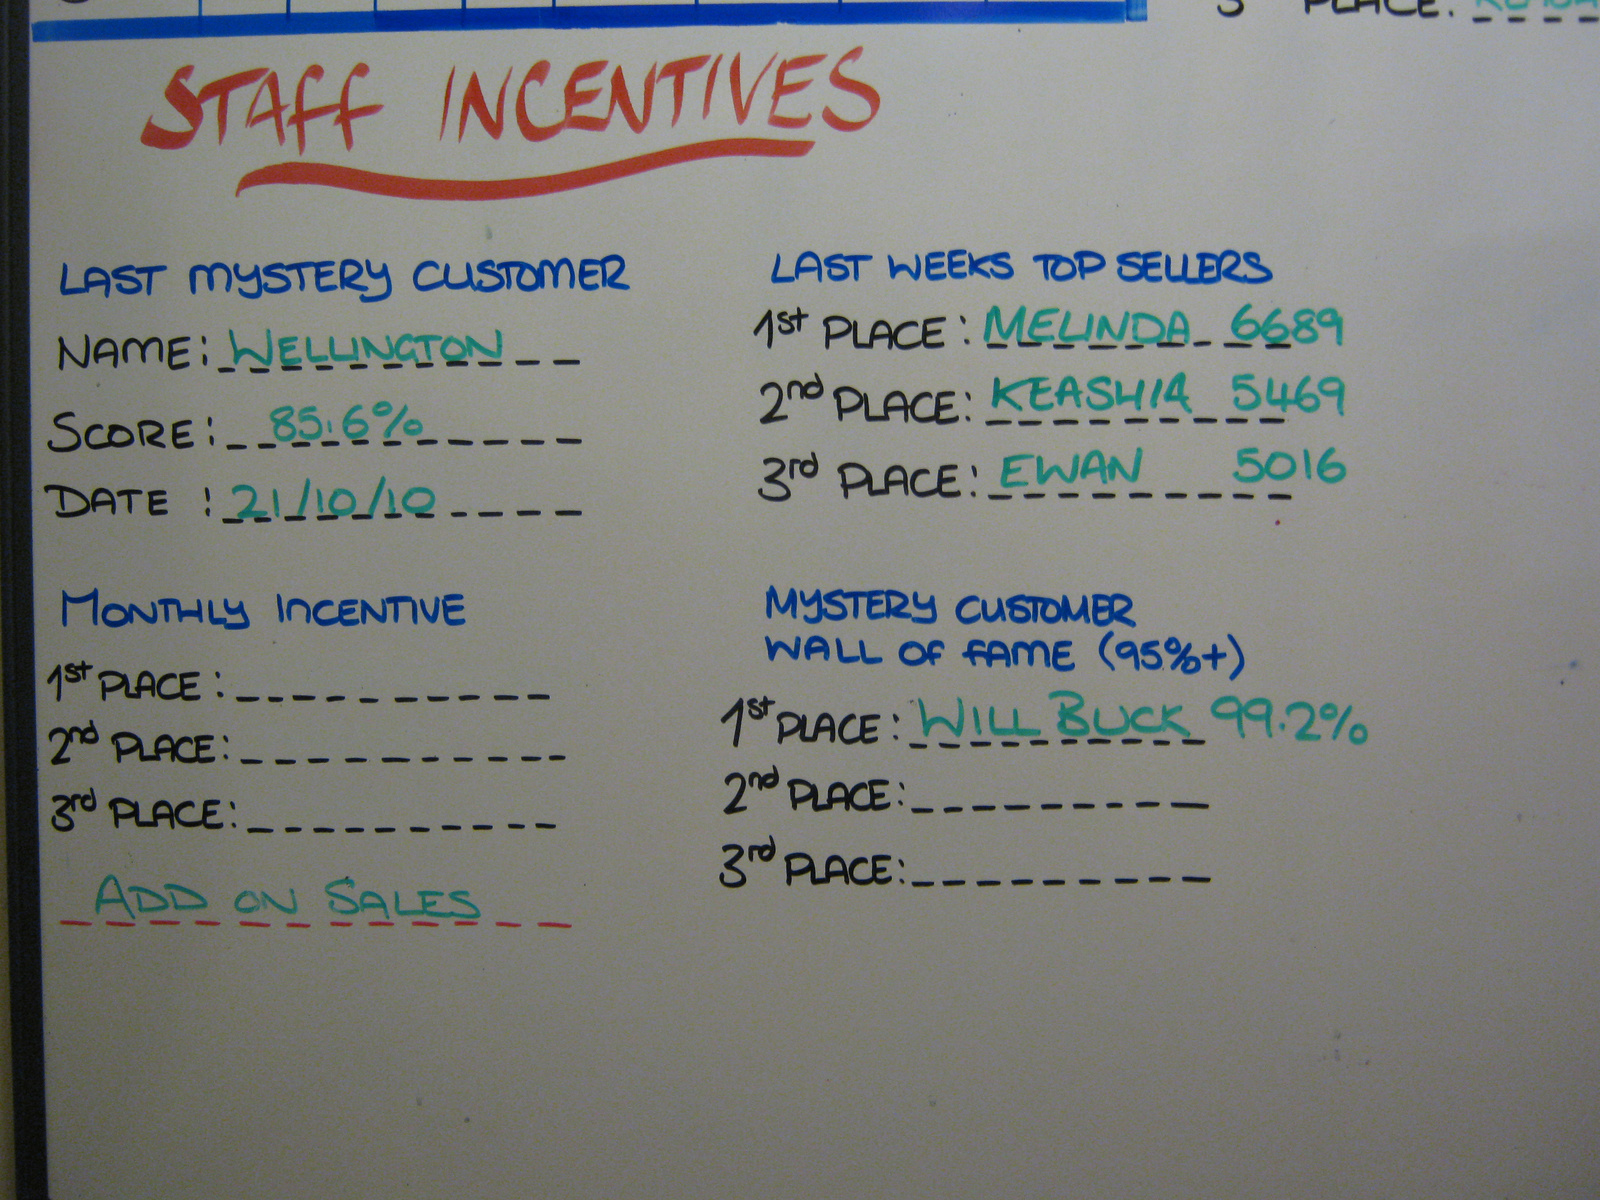 PLACE:
STAFF INCENTIVES
LAST MYSTERY CUSTOMER
NAME: WELLINGTON
SCORE: 85.6%
DATE : 21/10/10
LAST WEEKS TOP SELLERS
1st PLACE: MELINDA 6689
2nd PLACE: KEASHIA 5469
3rd PLACE: EWAN 5016
MONTHLY INCENTIVE
1st PLACE:
2nd PLACE:
3rd PLACE:
ADD ON SALES
MYSTERY CUSTOMER
WALL OF FAME (95%+)
1st PLACE: WILL BUCK 99.2%
2nd PLACE:
3rd PLACE: